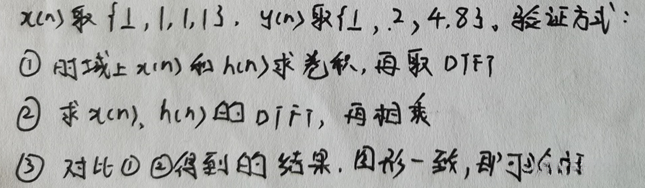 x(n)取{1,1,1,1}, y(n)取{1,2,4,8}。验证方式:
① 时域上x(n)和h(n)求卷积,再取DTFT
② 求x(n),h(n)的DTFT,再相乘
③ 对比①②得到的结果.图形一致,即可